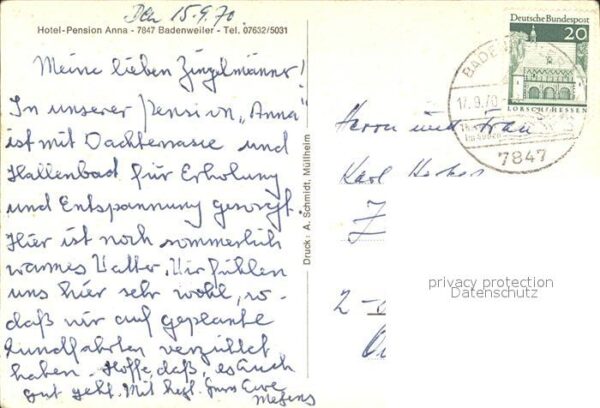 Den 15.9.70.
Hotel-Pension Anna - 7847 Badenweiler - Tel. 07632/5031
Meine lieben
In unserer Pension „Anna"
ist mit Dachterrasse und
Hallenbad für Erholung
und Entspannung gesorgt.
Hier ist noch sommerlich
warmes Wetter. Wir fühlen
uns hier sehr wohl, so-
daß wir auf geplante
Rundfahrten verzichtet
haben. Hoffe, daß es Euch
gut geht. Mit herzl. Gruss Eure
Druck: A. Schmidt, Müllheim
Deutsche Bundespost
20
LORSCH/HESSEN
17.9.70
7847
Herrn und Frau
Karl
Z
2-
privacy protection
Datenschutz